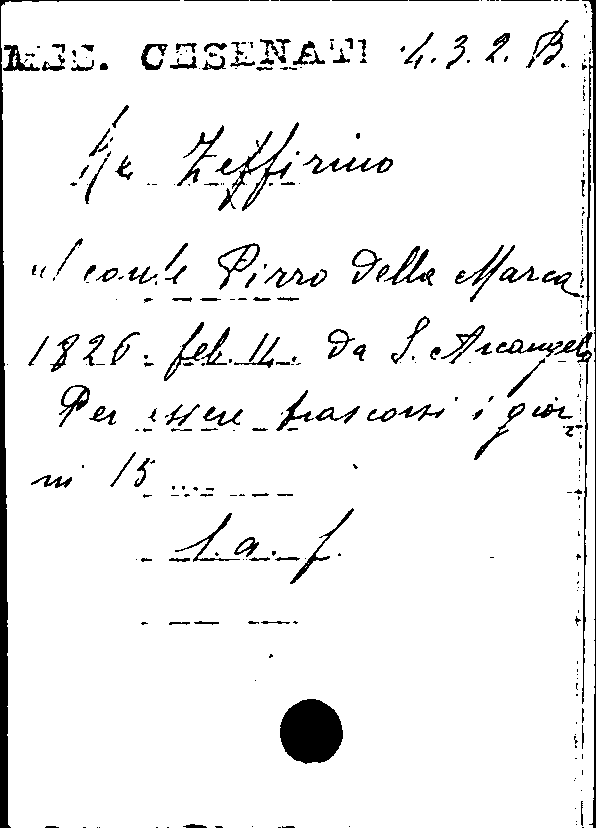 MSS. CESENATI 4.3.2. B.
Re Zeffirino
al conte Pirro della Marca
1826. feb. 14. Da S. Arcangelo
Per essere trascorsi i gior-
ni 15 ....
l. a. f.